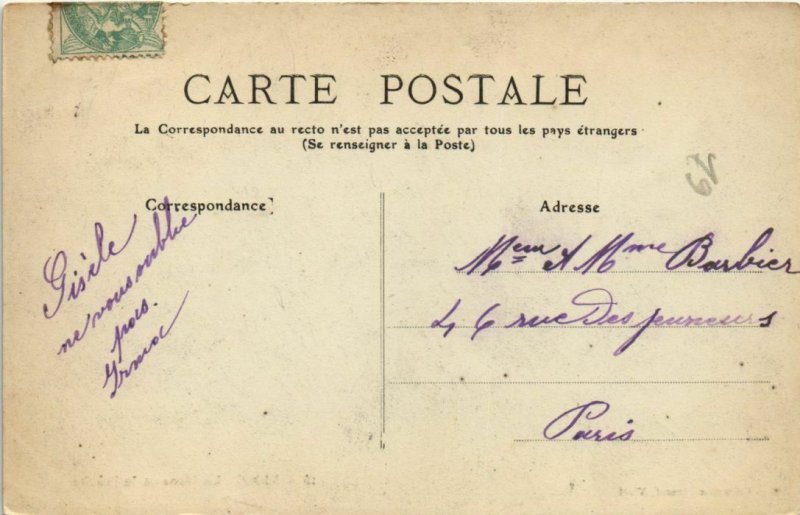 CARTE POSTALE
La Correspondance au recto n'est pas acceptée par tous les pays étrangers
(Se renseigner à la Poste)
19
Correspondance
Adresse
Gisèle
ne vous oublie
pas.
Irma
Meur & Mme Barbier
46 rue Des jeuneurs
Paris